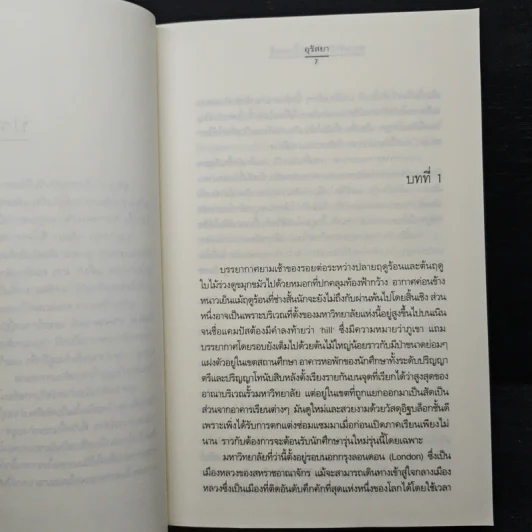 อุรัศยา
7
บทที่ 1
บรรยากาศยามเช้าของรอยต่อระหว่างปลายฤดูร้อนและต้นฤดู
ใบไม้ร่วงดูขมุกขมัวไปด้วยหมอกที่ปกคลุมท้องฟ้ากว้าง อากาศค่อนข้าง
หนาวเย็นแม้ฤดูร้อนที่ช่างสั้นนักจะยังไม่ถึงกับผ่านพ้นไปโดยสิ้นเชิง ส่วน
หนึ่งอาจเป็นเพราะบริเวณที่ตั้งของมหาวิทยาลัยแห่งนี้อยู่สูงขึ้นไปบนเนิน
จนชื่อแคมปัสต้องมีคำลงท้ายว่า 'hill' ซึ่งมีความหมายว่าภูเขา แถม
บรรยากาศโดยรอบยังเต็มไปด้วยต้นไม้ใหญ่น้อยราวกับมีป่าขนาดย่อมๆ
แฝงตัวอยู่ในเขตสถานศึกษา อาคารหอพักของนักศึกษาทั้งระดับปริญญา
ตรีและปริญญาโทนับสิบหลังตั้งเรียงรายกันบนจุดที่เรียกได้ว่าสูงสุดของ
อาณาบริเวณรั้วมหาวิทยาลัย แต่อยู่ในเขตที่ถูกแยกออกมาเป็นสัดเป็น
ส่วนจากอาคารเรียนต่างๆ มันดูใหม่และสวยงามด้วยวัสดุอิฐบล็อกชั้นดี
เพราะเพิ่งได้รับการตกแต่งซ่อมแซมมาเมื่อก่อนเปิดภาคเรียนเพียงไม่
นาน ราวกับต้องการจะต้อนรับนักศึกษารุ่นใหม่รุ่นนี้โดยเฉพาะ
มหาวิทยาลัยที่ว่านี้ตั้งอยู่รอบนอกกรุงลอนดอน (London) ซึ่งเป็น
เมืองหลวงของสหราชอาณาจักร แม้จะสามารถเดินทางเข้าสู่ใจกลางเมือง
หลวงซึ่งเป็นเมืองที่ติดอันดับคึกคักที่สุดแห่งหนึ่งของโลกได้โดยใช้เวลา